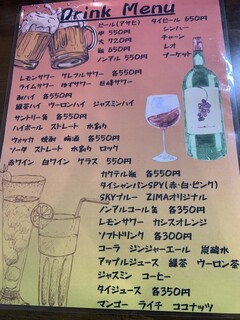 Drink Menu
ビール(アサヒ) タイビール 650円
中 550円 シンハー
大 920円 チャーン
瓶 650円 レオ
ノンアル 550円 プーケット
レモンサワー グレフルサワー 各550円
ライムサワー ゆずサワー 巨峰サワー
酎ハイ 各550円
緑茶ハイ ウーロンハイ ジャスミンハイ
サントリー角 各550円
ハイボール ストレート 水割り
ウォッカ 焼酎 梅酒 各550円
ソーダ ストレート 水割り ロック
赤ワイン 白ワイン グラス 550円
カクテル瓶 各550円
タイシャンパンSPY(赤・白・ピンク)
SKYブルー ZIMAオリジナル
ノンアルコール缶 各350円
レモンサワー カシスオレンジ
ソフトドリンク 各300円
コーラ ジンジャーエール 炭酸水
アップルジュース 緑茶 ウーロン茶
ジャスミン コーヒー
タイジュース 各350円
マンゴー ライチ ココナッツ